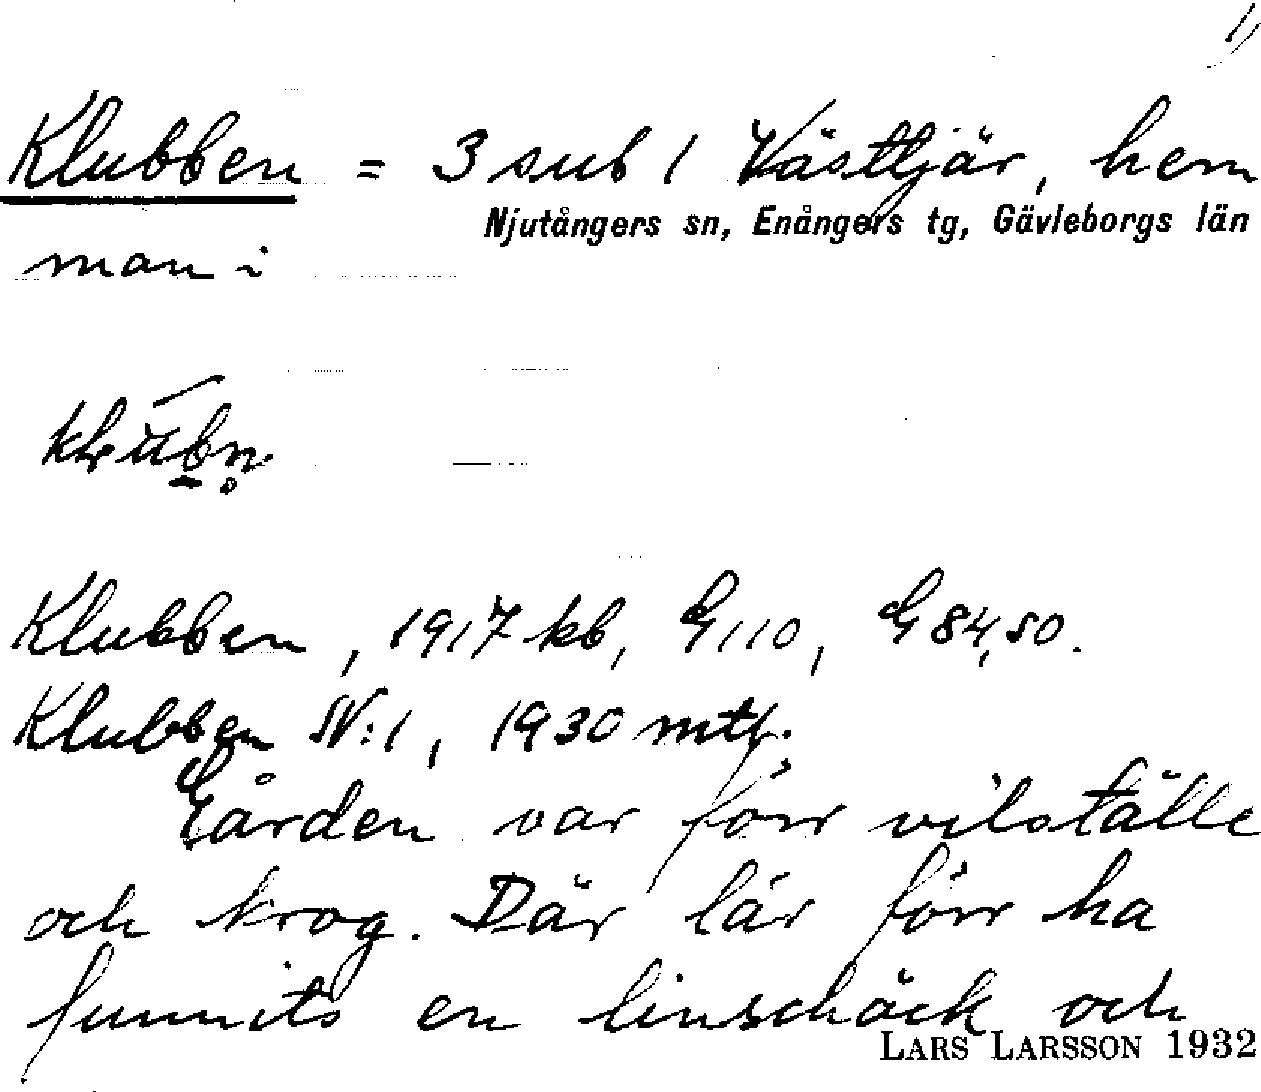 1)
Klubben = 3 sub 1 Västtjär, hem
Njutångers sn, Enångers tg, Gävleborgs län
man i
Klubben, 1917 kb, G 110, G 84,50.
Klubben N:1, 1930 mtl.
Gården var förr viloställe
och krog. Där lär förr ha
funnits en linschäck och
LARS LARSSON 1932